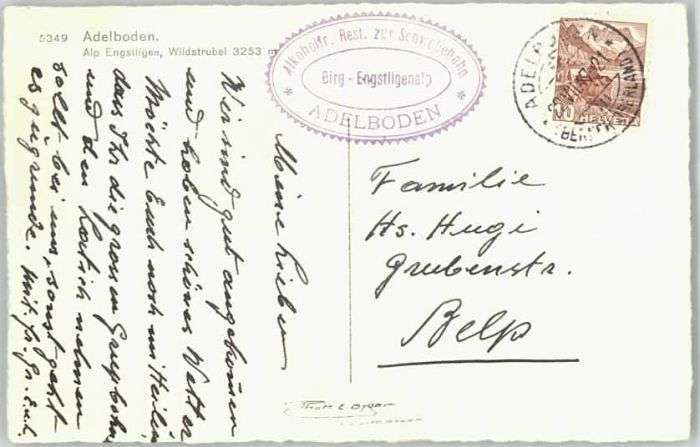 5349 Adelboden.
Alp Engstligen, Wildstrubel 3253 m
Alkoholfr. Rest. zur Schwebebahn
Birg - Engstligenalp
* ADELBODEN *
ADELBODEN *
HELVETIA
Meine Lieben
Wir sind gut angekommen
und haben schönes Wetter
Möchte Euch noch mitteilen
dass Ihr die grossen
und den Rettich nehmen
sollt bei uns, sonst geht
es zugrunde. Mit fr. Gr. Euch.
Familie
Hs. Hugi
Grubenstr.
Belp